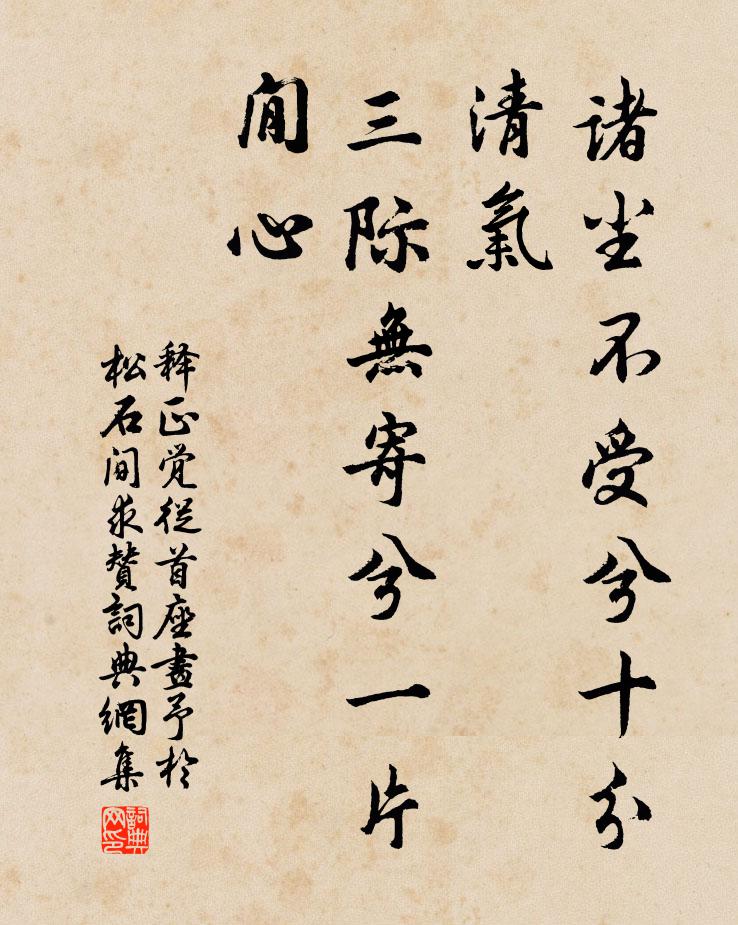 诸尘不受兮十分
清氣
三际無寄兮一片
閒心
释正觉從首座畫予於
松石间求赞詞典網集
詞典网印